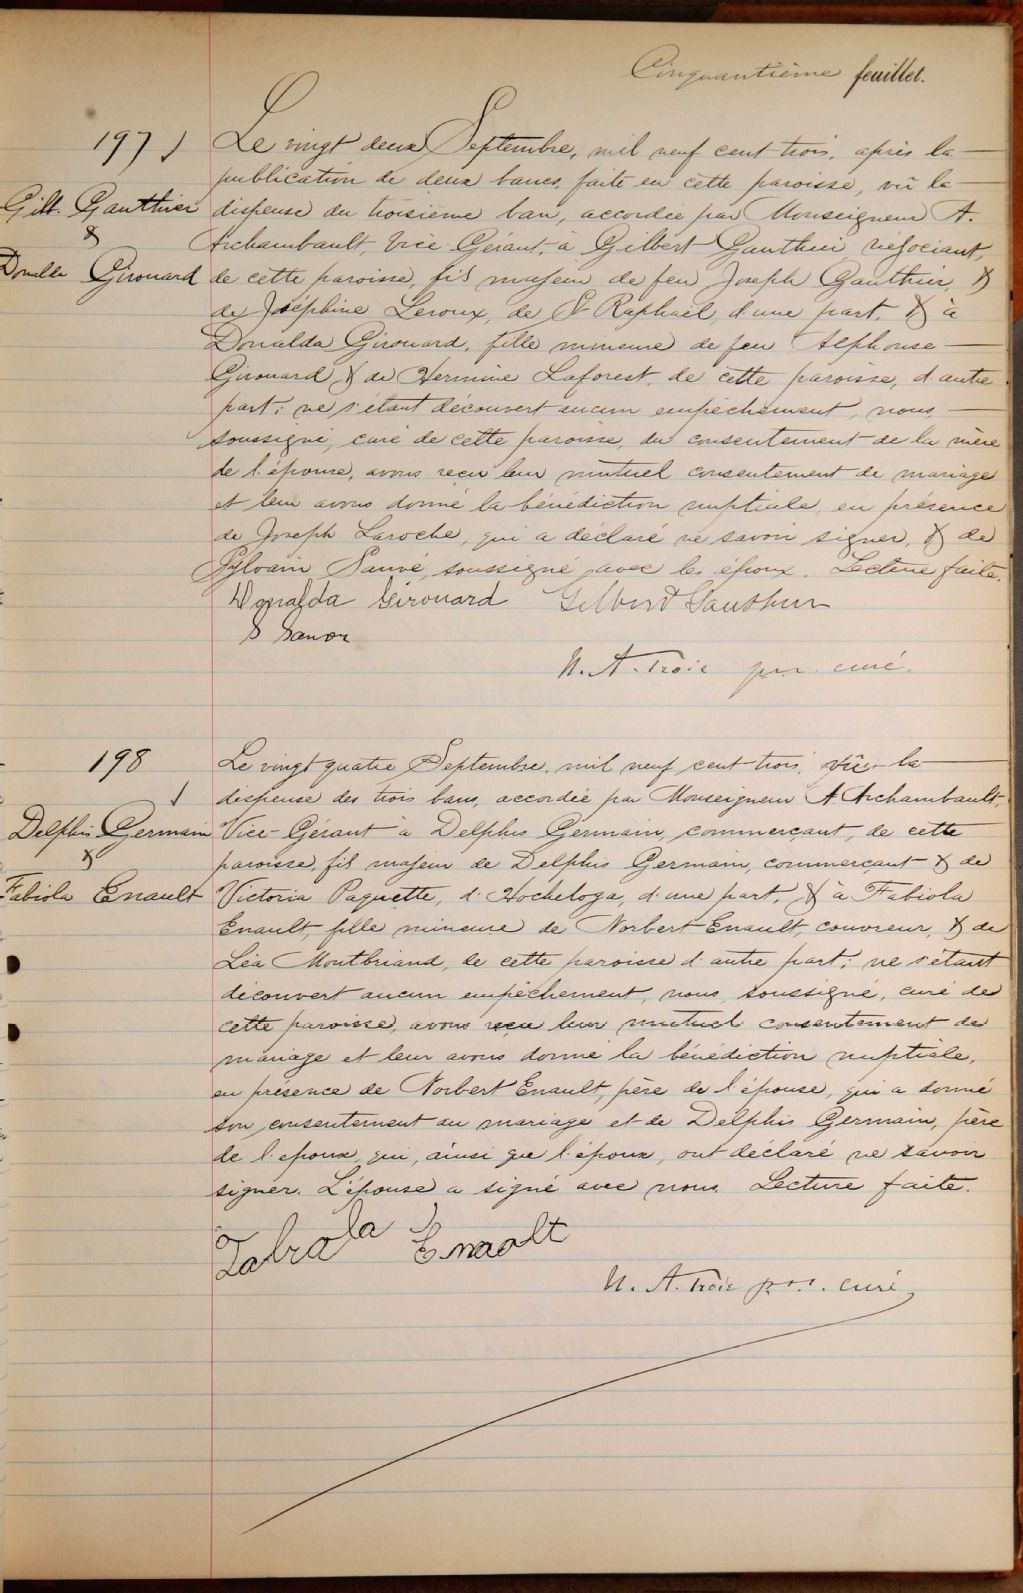 Cinquantième feuillet.
197
Gilb. Gauthier
&
Donalda Girouard
Le vingt deux Septembre, mil neuf cent trois, après la
publication de deux bancs, faite en cette paroisse, vû la
dispense du troisième ban, accordée par Monseigneur A.
Archambault, Vice-Gérant, à Gilbert Gauthier négociant,
de cette paroisse, fils majeur de feu Joseph Gauthier, &
de Joséphine Leroux, de St Raphaël, d'une part, & à
Donalda Girouard, fille mineure de feu Alphonse
Girouard & de Hermine Laforest, de cette paroisse, d'autre
part; ne s'étant découvert aucun empêchement, nous,
soussigné, curé de cette paroisse, du consentement de la mère
de l'épouse, avons reçu leur mutuel consentement de mariage
et leur avons donné la bénédiction nuptiale, en présence
de Joseph Laroche, qui a déclaré ne savoir signer, & de
Sylvain Sauvé, soussigné avec les époux. Lecture faite.
Donalda Girouard Gilbert Gauthier
S
N. A. Troie ptre. curé.
198
Delphis Germain
&
Fabiola Enault
Le vingt quatre Septembre, mil neuf cent trois, vû la
dispense des trois bans, accordée par Monseigneur A. Archambault,
Vice-Gérant à Delphis Germain, commerçant, de cette
paroisse, fils majeur de Delphis Germain, commerçant & de
Victoria Paquette, d'Hochelaga, d'une part, & à Fabiola
Enault, fille mineure de Norbert Enault, couvreur, & de
Léa Montbriand, de cette paroisse d'autre part; ne s'étant
découvert aucun empêchement, nous, soussigné, curé de
cette paroisse, avons reçu leur mutuel consentement de
mariage et leur avons donné la bénédiction nuptiale,
en présence de Norbert Enault, père de l'épouse, qui a donné
son consentement au mariage et de Delphis Germain, père
de l'epoux, qui, ainsi que l'époux, ont déclaré ne savoir
signer. L'épouse a signé avec nous. Lecture faite.
Fabiola Enaolt
N. A. Troie ptre. curé